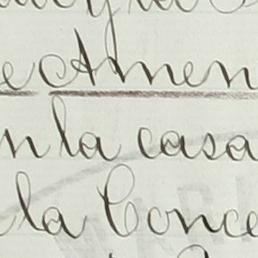 e Amen
n la casa
la Conce